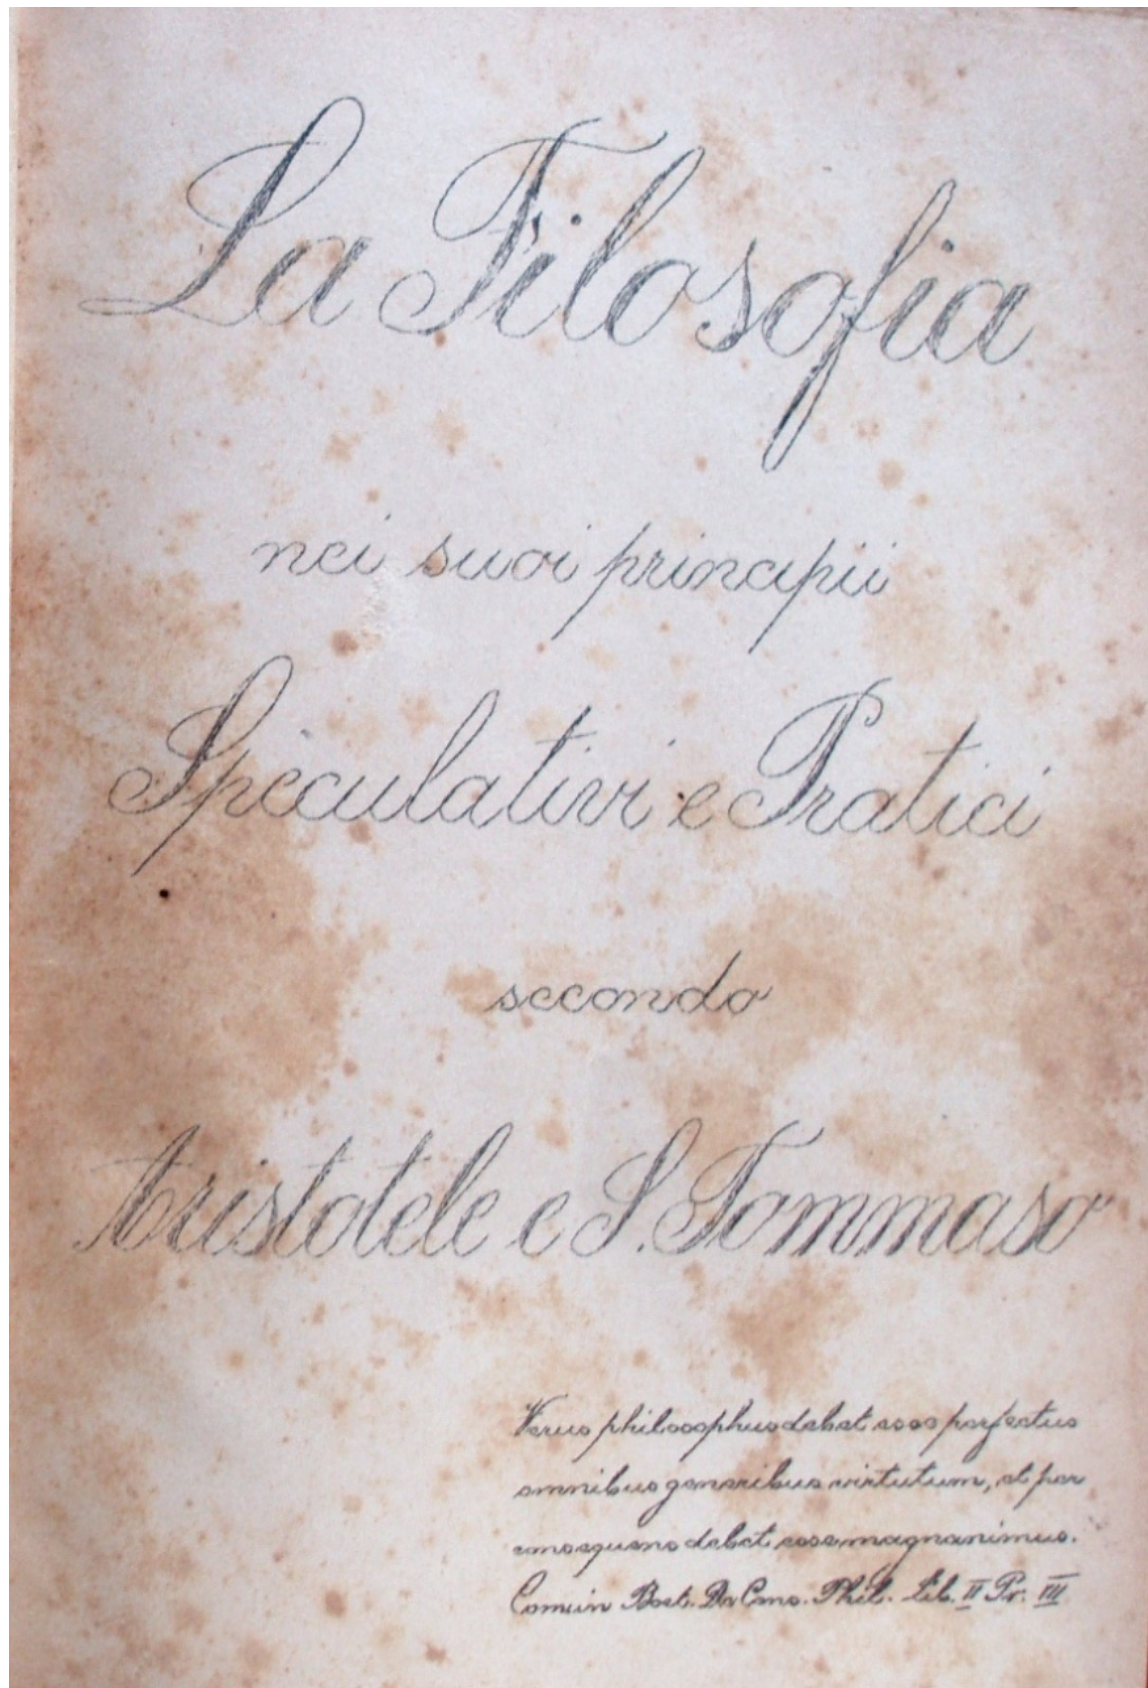 La Filosofia
nei suoi principii
Speculativi e Pratici
secondo
Aristotele e S. Tommaso
Verus philosophus debet esse perfectus
omnibus generibus virtutum, et per
consequens debet esse magnanimus.
Comm Boet. De Cons. Phil. Lib. II Pr. III